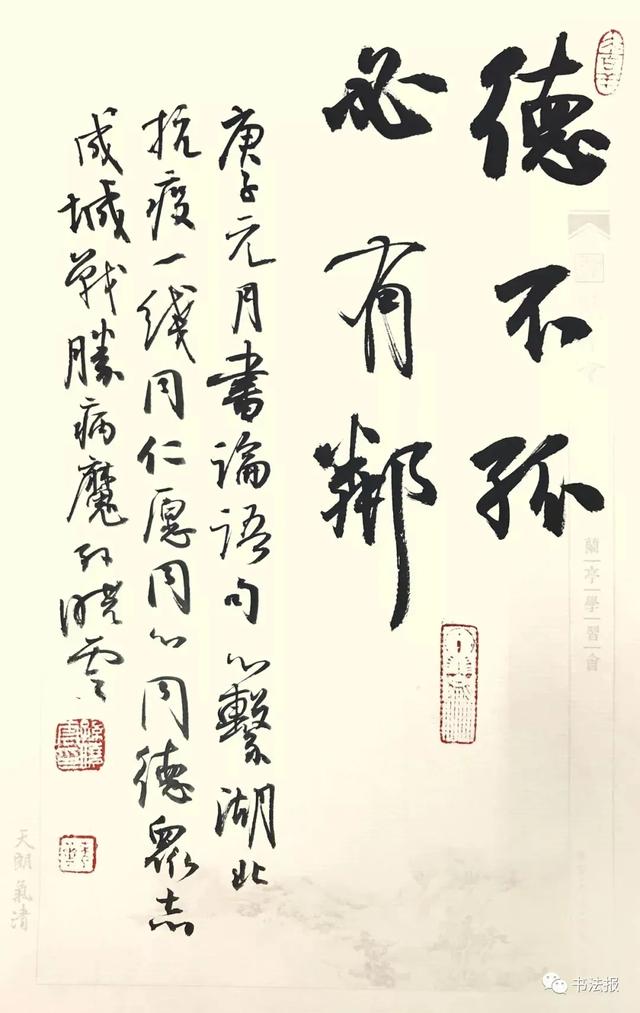 德不孤
必有鄰
庚子元月書論語句心繫湖北
抗疫一綫同仁愿同心同德眾志
成城戰勝病魔孙曉雲
孫曉雲印
蘭亭學習會
天朗氣清
书法报